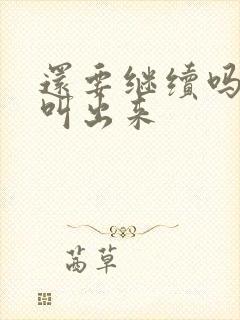 還要继续吗
叫出来
茜草